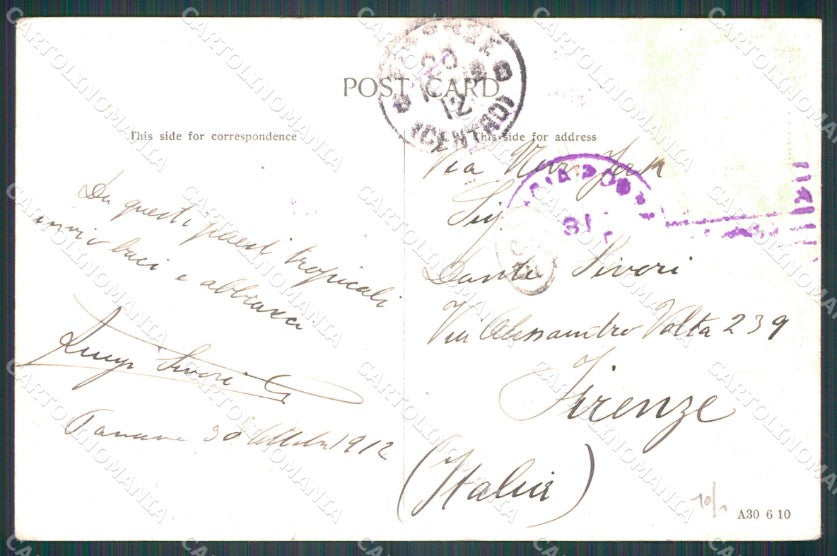 POST CARD
This side for correspondence
This side for address
Da questi paesi tropicali
invio baci e abbracci
Luigi Sivori
Panama 30 Ottobre 1912
Via New York
Sig
Dante Sivori
Via Alessandro Volta 239
Firenze
(Italia)
FIRENZE
20
12
(CENTRO)
31
10/1
A30 6 10
CARTOLINOMANIA